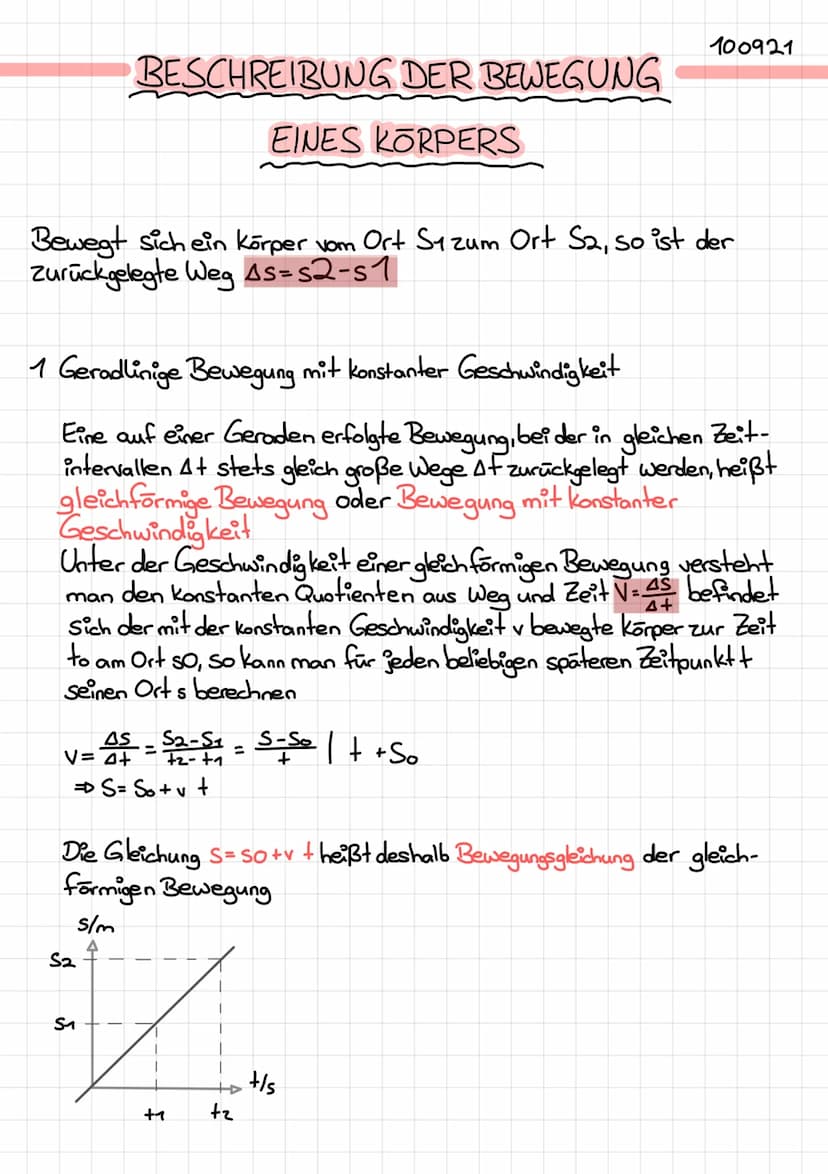 100921
BESCHREIBUNG DER BEWEGUNG
EINES KÖRPERS
Bewegt sich ein Körper vom Ort S1 zum Ort S2, so ist der
zurückgelegte Weg Δs=s2-s1
1 Geradlinige Bewegung mit konstanter Geschwindigkeit
Eine auf einer Geraden erfolgte Bewegung, bei der in gleichen Zeit-
intervallen Δt stets gleich große Wege Δt zurückgelegt werden, heißt
gleichförmige Bewegung oder Bewegung mit konstanter
Geschwindigkeit
Unter der Geschwindigkeit einer gleichförmigen Bewegung versteht
man den konstanten Quotienten aus Weg und Zeit V=Δs/Δt befindet
sich der mit der konstanten Geschwindigkeit v bewegte Körper zur Zeit
to am Ort so, so kann man für jeden beliebigen späteren Zeitpunkt t
seinen Ort s berechnen
V= Δs/Δt = S2-S1/t2-t1 = S-So/t | t +So
⇒ S= So+v t
Die Gleichung s=so+v t heißt deshalb Bewegungsgleichung der gleich-
förmigen Bewegung
s/m
S2
S1
t/s
t1 t2